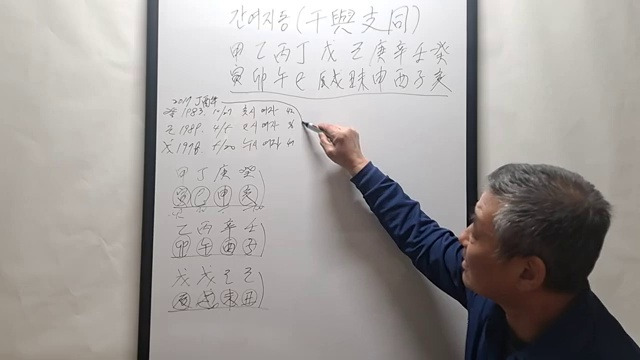 간여지동(干與支同)
甲乙丙丁戊己庚辛壬癸
寅卯午巳辰戌丑未申酉子亥
2017 丁酉年
1983. 10/27 축시 여자 42
己 1989. 4/5 여자
戊 1978. 5/20 여자
甲丁庚癸
寅巳申亥
乙丙辛壬
卯午酉子
戊戊己己
辰戌未丑